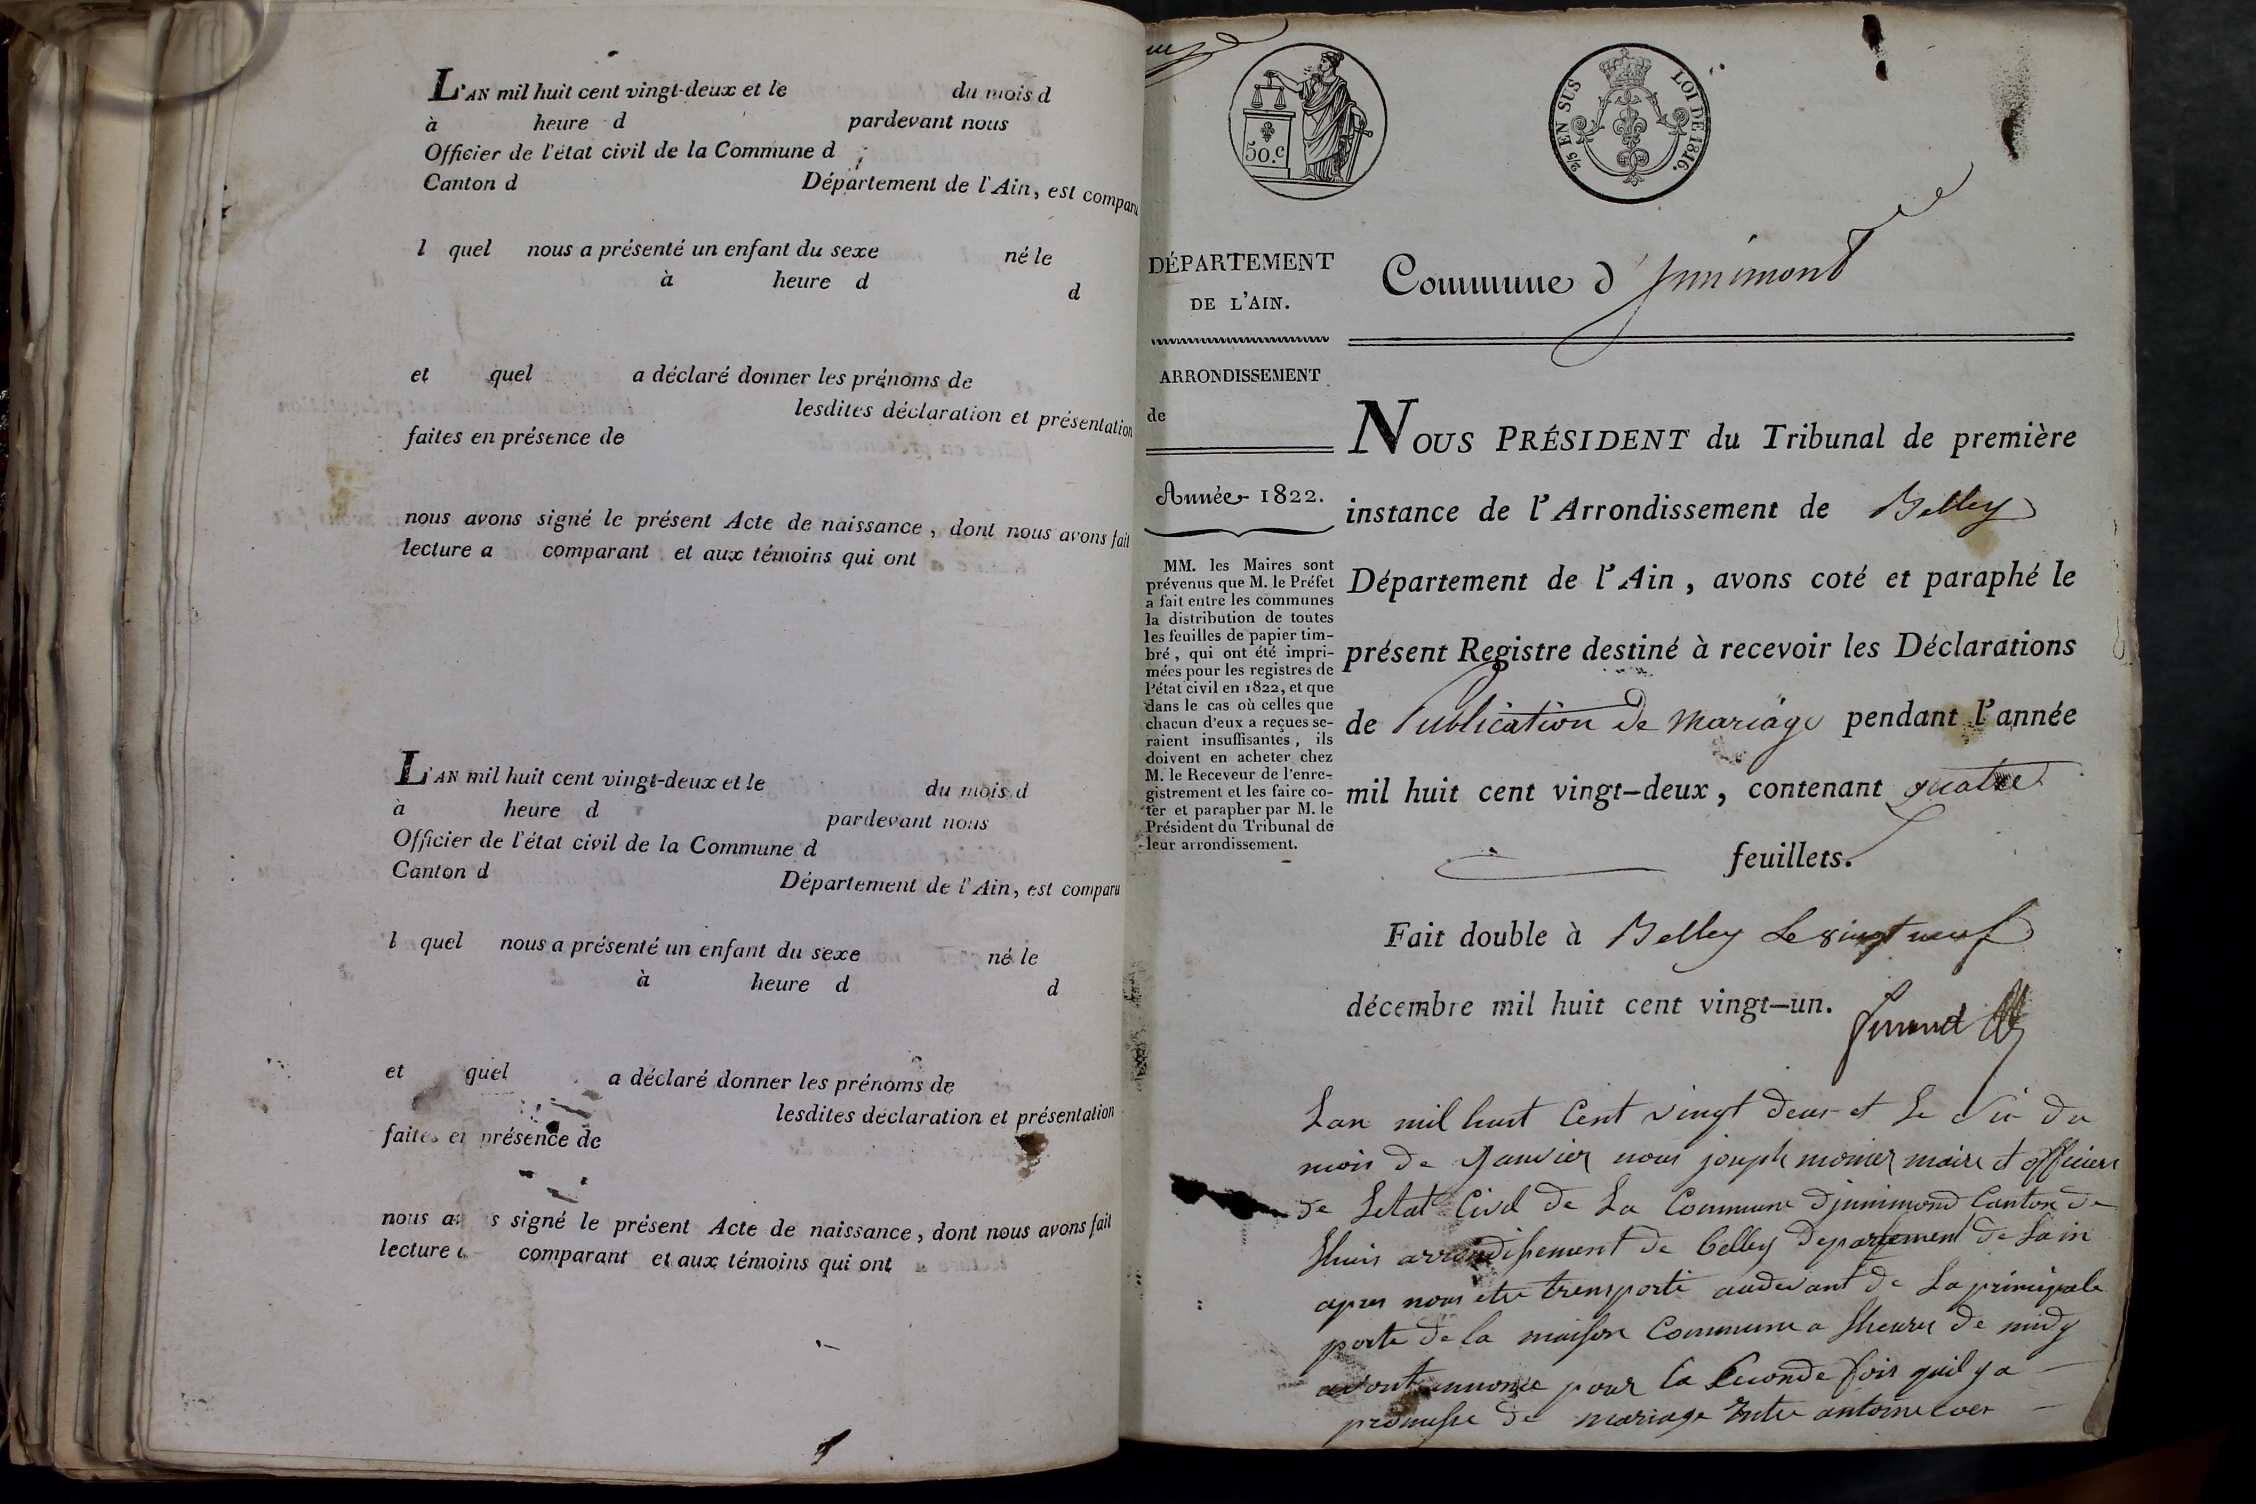 L'AN mil huit cent vingt-deux et le du mois d
à heure d pardevant nous
Officier de l'état civil de la Commune d
Canton d Département de l'Ain, est comparu
l quel nous a présenté un enfant du sexe né le
à heure d d
et quel a déclaré donner les prénoms de
lesdites déclaration et présentation
faites en présence de
nous avons signé le présent Acte de naissance, dont nous avons fait
lecture a comparant et aux témoins qui ont
L'AN mil huit cent vingt-deux et le du mois d
à heure d pardevant nous
Officier de l'état civil de la Commune d
Canton d Département de l'Ain, est comparu
l quel nous a présenté un enfant du sexe né le
à heure d d
et quel a déclaré donner les prénoms de
lesdites déclaration et présentation
faites en présence de
nous a s signé le présent Acte de naissance, dont nous avons fait
lecture comparant et aux témoins qui ont
50.c
2/5 EN SUS LOI DE 1816.
DÉPARTEMENT
DE L'AIN.
Commune d'Jnnimond
ARRONDISSEMENT
de
Année 1822.
MM. les Maires sont
prévenus que M. le Préfet
a fait entre les communes
la distribution de toutes
les feuilles de papier tim-
bré, qui ont été impri-
mées pour les registres de
l'état civil en 1822, et que
dans le cas où celles que
chacun d'eux a reçues se-
raient insuffisantes, ils
doivent en acheter chez
M. le Receveur de l'enre-
gistrement et les faire co-
ter et parapher par M. le
Président du Tribunal de
leur arrondissement.
NOUS PRÉSIDENT du Tribunal de première
instance de l'Arrondissement de Belley
Département de l'Ain, avons coté et paraphé le
présent Registre destiné à recevoir les Déclarations
de Publication de mariage pendant l'année
mil huit cent vingt-deux, contenant quatre
feuillets.
Fait double à Belley le vingt neuf
décembre mil huit cent vingt-un.
Lan mil huit Cent vingt deux et Le Six du
mois de Janvier nous joseph monier maire et officier
de Letat Civil de La Commune djnnimond Canton de
Lhuis arrondissement de belley departement de Lain
apres nous etre transporté audevant de La principale
porte de la maison Commune a Lheure de midy
avont annonce pour la Seconde fois quil y a
promesse de mariage Entre antoine